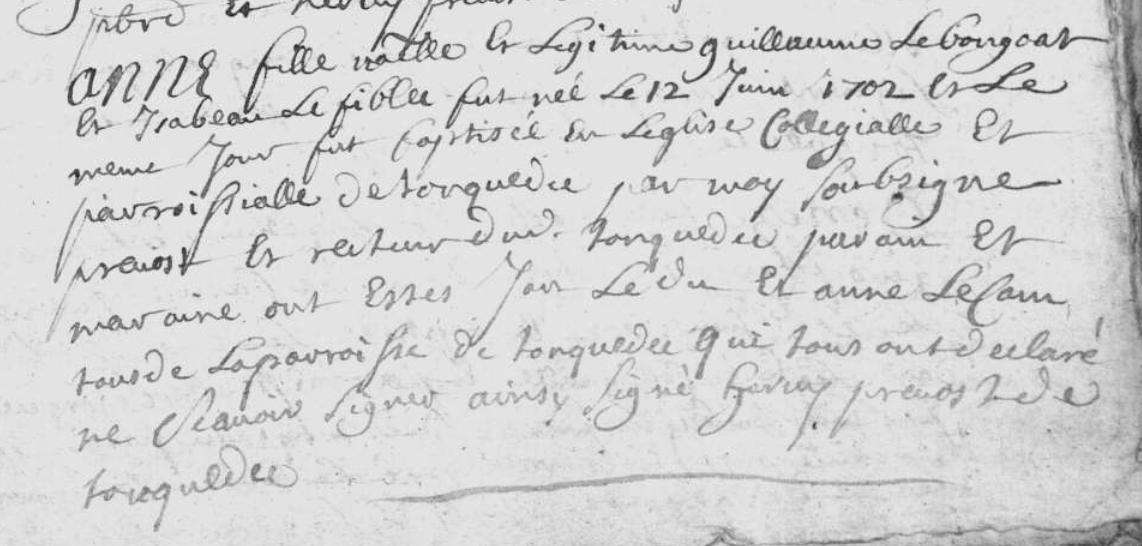 pbre et
ANNE fille nâtlle et Legitime guillaume Lebongoat
et Isabeau Le fiblec fut neé Le 12 Juin 1702 et Le
meme Jour fut baptiseé en Leglise Collegialle Et
parroissialle de tonquedec par moy soubsigne
prevost et recteur dud. tonquedec parain Et
maraine ont Estes Jan Le du Et anne LeCam
tous de Laparroisse de tonquedec qui tous ont declaré
ne scavoir signer ainsy signé hervy prevost de
tonquedec